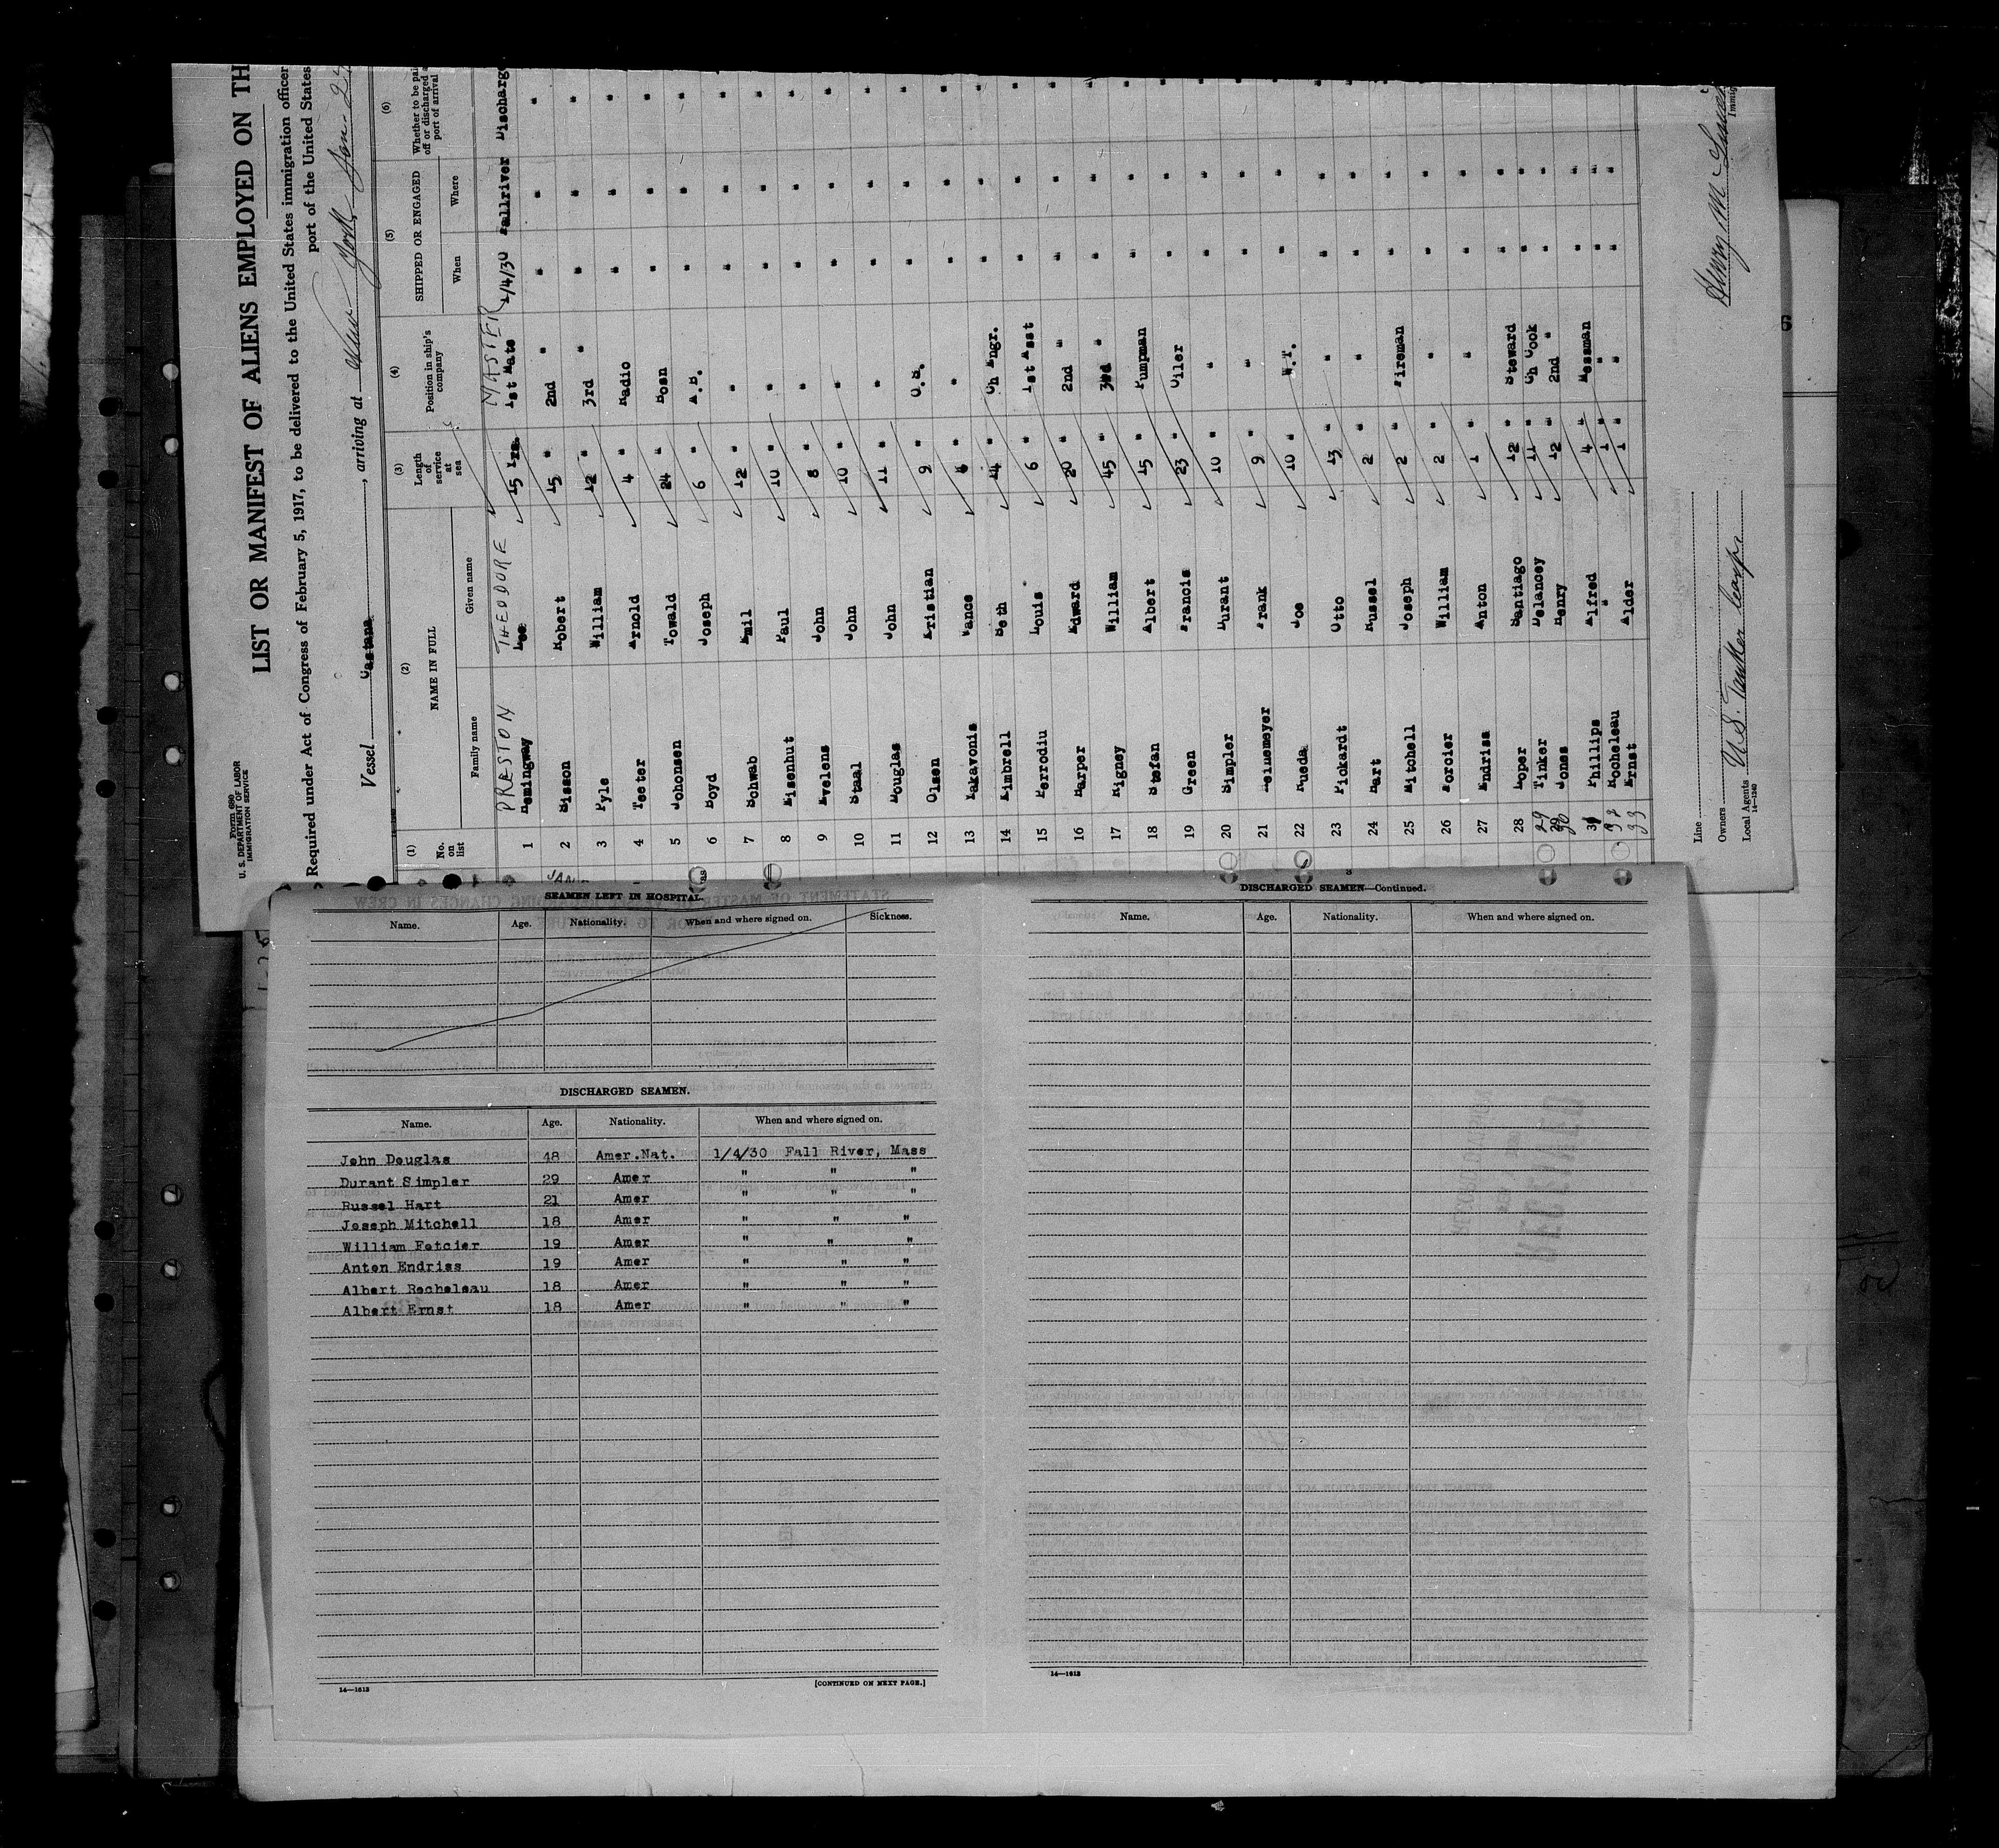 Form 680
U. S. DEPARTMENT OF LABOR
IMMIGRATION SERVICE
LIST OR MANIFEST OF ALIENS EMPLOYED ON TH
Required under Act of Congress of February 5, 1917, to be delivered to the United States immigration officer
port of the United States
Vessel Castana, arriving at New York Jan. 2
(1) (2) (3) (4) (5) (6)
No. on list NAME IN FULL Length of service at sea Position in ship's company SHIPPED OR ENGAGED Whether to be pai off or discharged a port of arrival
Family name Given name When Where
PRESTON THEODORE MASTER
1 Hemingway Lee 15 Yrs. 1st Mate 1/4/30 Fallriver Discharg
2 Sisson Robert 15 " 2nd " " " "
3 Pyle William 12 " 3rd " " " "
4 Teeter Arnold 4 " Radio " " "
5 Johonsen Towald 24 " Bosn " " "
6 Boyd Joseph 6 " A.B. " " "
7 Schwab Emil 12 " " " " "
8 Eisenhut Paul 10 " " " " "
9 Evelens John 8 " " " " "
10 Staal John 10 " " " " "
11 Douglas John 11 " " " "
12 Olsen Kristian 9 " O.S. " " "
13 Yakavonis Vance " " " " "
14 Kimbrell Seth 14 " Ch Engr. " " "
15 Perrodiu Louis 6 " 1st Asst " " "
16 Harper Edward 20 " 2nd " " " "
17 Rigney William 45 " 3rd " " " "
18 Stefan Albert 15 " Pumpman " " "
19 Green Francis 23 " Oiler " " "
20 Simpler Durant 10 " " " " "
21 Heinemeyer Frank 9 " " " " "
22 Rueda Joe 10 " W.T. " " "
23 Pickardt Otto 13 " " " " "
24 Hart Russel 2 " " " " "
25 Mitchell Joseph 2 " Fireman " " "
26 Forcier William 2 " " " " "
27 Endriss Anton 1 " " " " "
28 Loper Santiago 12 " Steward " " "
29 Tinker Delancey 11 " Ch Cook " " "
30 Jones Henry 12 " 2nd " " " "
31 Phillips Alfred 4 " Messman " " "
32 Rocheleau " 1 " " " " "
33 Ernst Alder 1 " " " " "
Line
Owners U.S. Tanker Corp.
Local Agents
14—1240
Henry M
Immig
SEAMEN LEFT IN HOSPITAL.
Name. Age. Nationality. When and where signed on. Sickness.
DISCHARGED SEAMEN.
Name. Age. Nationality. When and where signed on.
John Douglas 48 Amer.Nat. 1/4/30 Fall River, Mass
Durant Simpler 29 Amer " " "
Russel Hart 21 Amer " " "
Joseph Mitchell 18 Amer " " "
William Fotcier 19 Amer " " "
Anton Endriss 19 Amer " " "
Albert Rocheleau 18 Amer " " "
Albert Ernst 18 Amer " " "
14—1613
[CONTINUED ON NEXT PAGE.]
DISCHARGED SEAMEN—Continued.
Name. Age. Nationality. When and where signed on.
14—1613